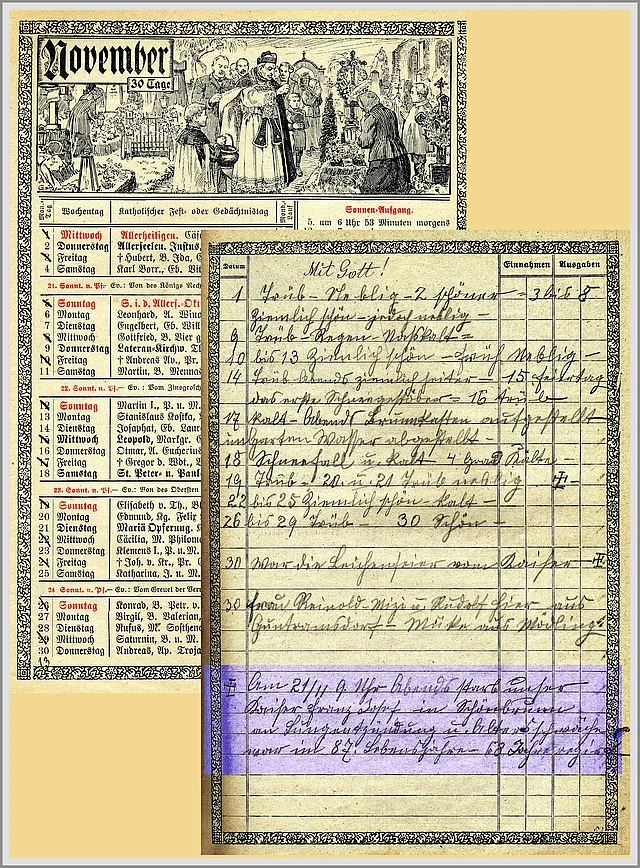 November
30 Tage
Wochentag
Katholischer Fest- oder Gedächtnistag
Sonnen-Aufgang.
5. um 6 Uhr 53 Minuten morgens
Mittwoch Allerheiligen.
2 Donnerstag Allerseelen. Justus,
Freitag † Hubert, B. Ida,
4 Samstag Karl Borr.,
21. Sonnt. n. Pf.— Ev.: Von des Königs
Sonntag S. i. d. Allerh.-Okt
6 Montag Leonhard, A.
7 Dienstag Engelbert, Eb.
Mittwoch Gottfried, B. Vier
9 Donnerstag Lateran-Kirchw.
Freitag † Andreas Av., Pr.
11 Samstag Martin, B.
22. Sonnt. n. Pf.— Ev.: Vom
Sonntag Martin I., P. u. M.
13 Montag Stanislaus Kostka,
14 Dienstag Josaphat, Eb.
Mittwoch Leopold, Markgr.
16 Donnerstag Otmar, A.
Freitag † Gregor d. Wdt.,
18 Samstag St. Peter- u.
23. Sonnt. n. Pf.— Ev.: Von des Obersten
Sonntag Elisabeth v. Th.,
20 Montag Edmund, Kg. Felix
21 Dienstag Mariä Opferung.
22 Mittwoch Cäcilia, M.
23 Donnerstag Klemens I., P. u. M.
Freitag † Joh. v. Kr., Pr.
25 Samstag Katharina, J. u. M.
24. Sonnt. n. Pf.— Ev.: Vom Greuel der
Sonntag Konrad, B. Petr. v.
27 Montag Virgil, B. Valerian,
28 Dienstag Rufus, M.
Mittwoch Saturnin, B. u. M.
30 Donnerstag Andreas, Ap.
13
Datum
Mit Gott!
Einnahmen
Ausgaben
1 Trüb – Neblig – 2 schöner = 3 bis 8
Ziemlich schön – jedoch neblig –
9 Trüb – Regen – Nasskalt =
10 bis 13 Ziemlich schön – Früh Neblig –
14 Trüb – Abends ziemlich heiter – 15 Feiertag
das erste Schneegestöber = 16 trüb
17 Kalt – Abends Brunnkasten aufgestellt
im garten Wasser abgestellt –
18 Schneefall u. kalt – 4 Grad Kälte –
19 Trüb – 20. u. 21 Trüb neblig –
22 bis 25 Ziemlich schön – kalt –
26 bis 29 Trüb – 30 Schön –
30 War die Leichenfeier vom Kaiser –
30 Frau Reinold – Mizi u. Rudolf hier – aus
Guntramsdorf – aus Mödling
Am 21/11 9 Uhr Abends starb unser
Kaiser Franz Josef in Schönbrunn
an Lungentzündung u. Altersschwäche
war im 87. Lebensjahre – 68 Jahre regirt